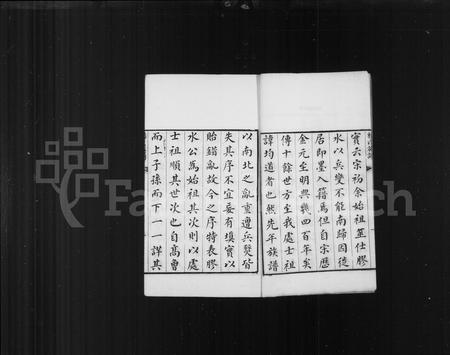 實云宋初余始祖筮仕膠
水以兵變不能南歸因徙
居即墨入籍焉但自宋歷
金元至明興幾四百年矣
傳十餘世方至我處士祖
諱均道者也然先年族譜
以南北之亂重遭兵燹皆
失其序不宜妄有填實以
貽錯亂故今之序特表膠
水公為始祖其次則以處
士祖順其世次也自高曾
而上子孫而下一一詳其